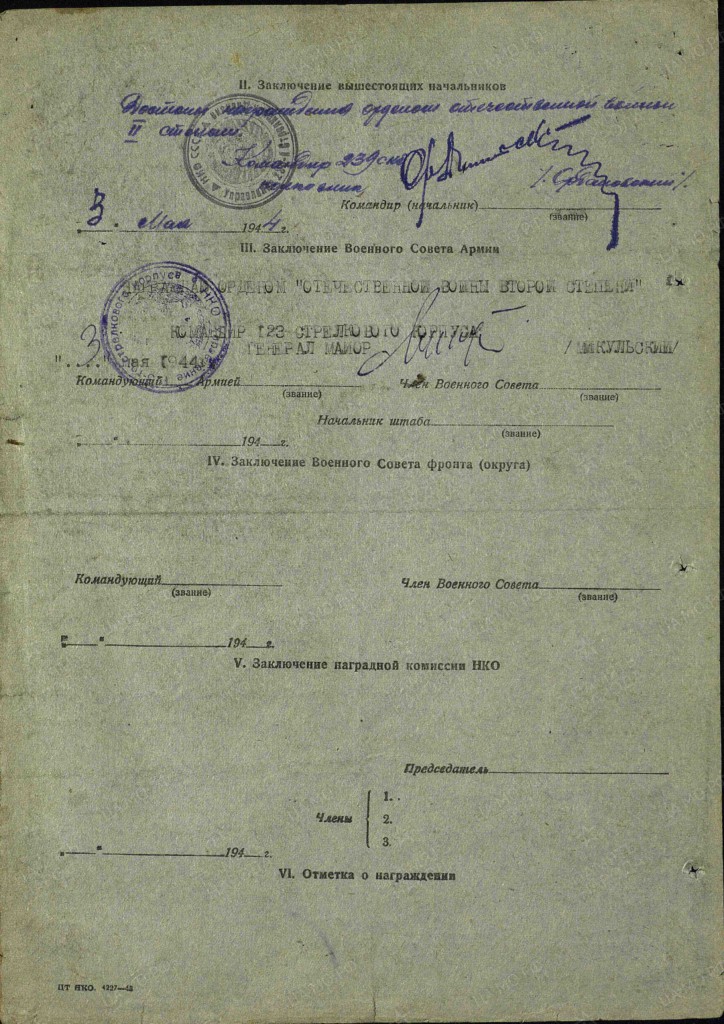 II. Заключение вышестоящих начальников
Достоин награждения орденом отечественной войны
II степени.
Командир 239 сп
полковник
Командир (начальник)
/Орбановский/
(звание)
3 " Мая 1944 г.
III. Заключение Военного Совета Армии
ОРДЕНОМ "ОТЕЧЕСТВЕННОЙ ВОЙНЫ ВТОРОЙ СТЕПЕНИ"
КОМАНДИР 123 СТРЕЛКОВОГО КОРПУСА
ГЕНЕРАЛ МАЙОР /МИКУЛЬСКИЙ/
"..3.." мая 1944 г.
Командующий Армией Член Военного Совета
(звание) (звание)
Начальник штаба
(звание)
" " 194 г.
IV. Заключение Военного Совета фронта (округа)
Командующий Член Военного Совета
(звание) (звание)
" " 194 г.
V. Заключение наградной комиссии НКО
Председатель
Члены
1.
2.
3.
" " 194 г.
VI. Отметка о награждении
ЦТ НКО. 4227—43